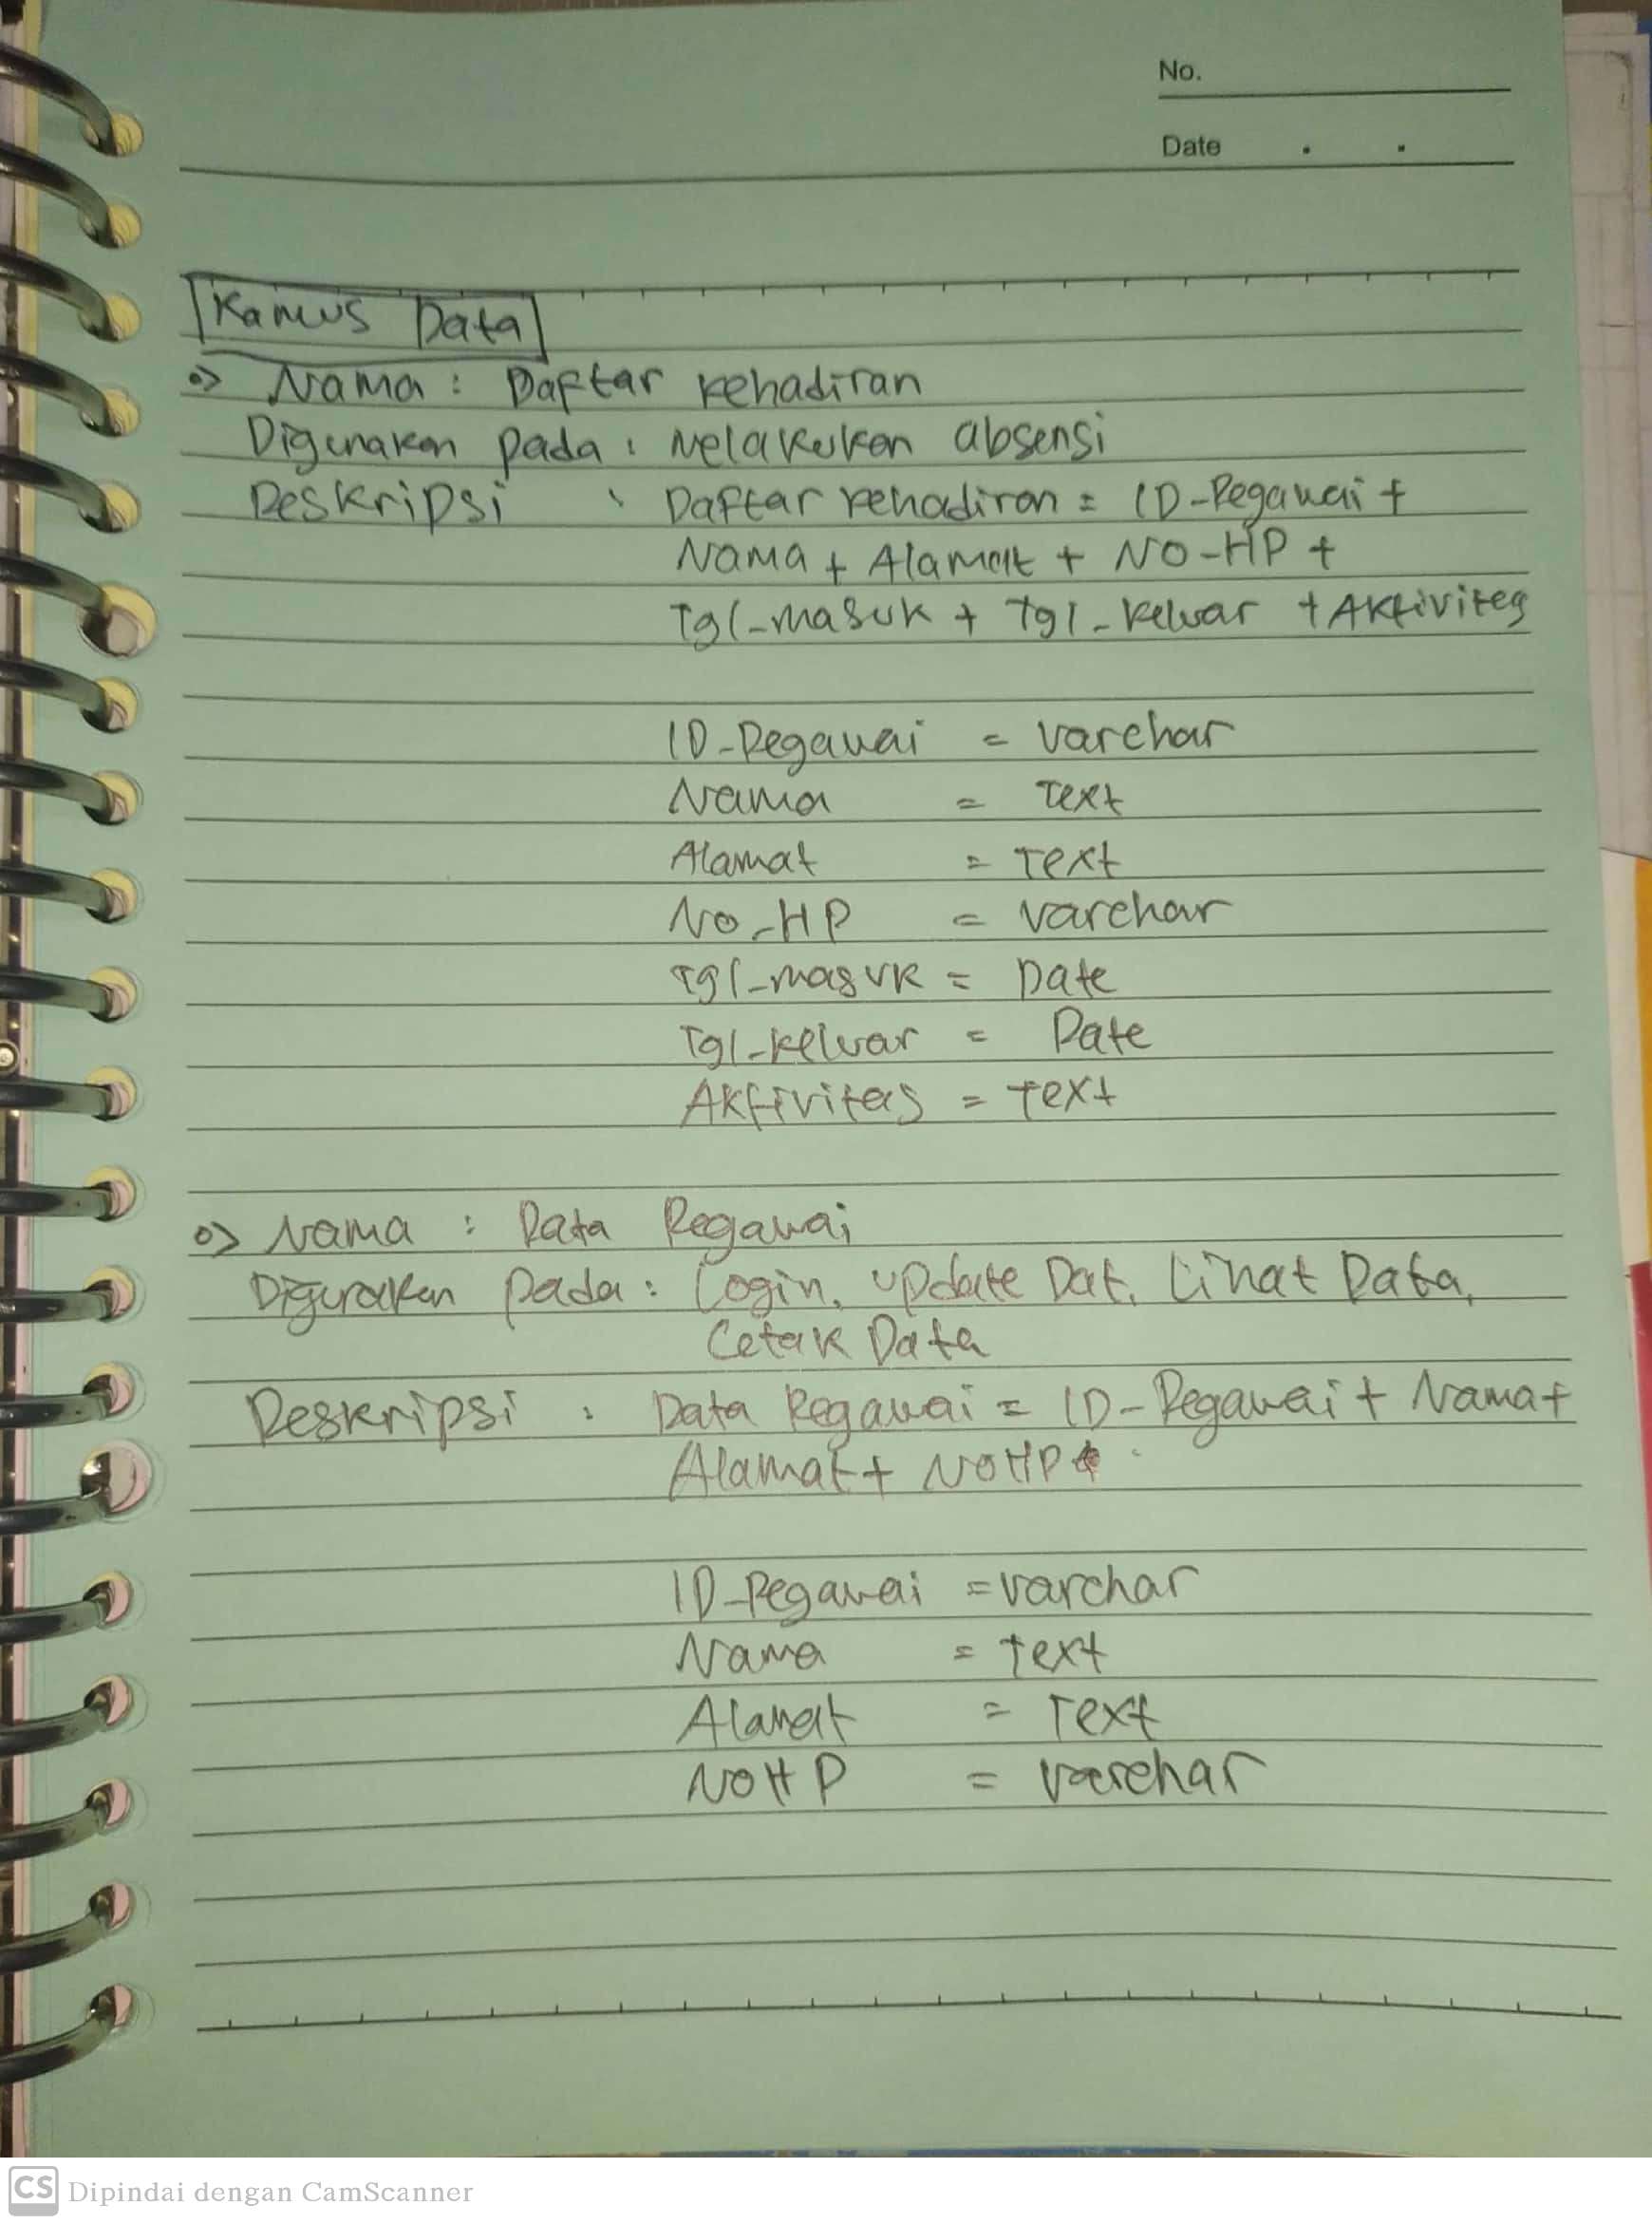 No.
Date . .
Kamus Data
=> Nama : Daftar kehadiran
Digunakan pada : Melakukan absensi
Deskripsi : Daftar kehadiran = ID-Pegawai +
Nama + Alamat + NO-HP +
Tgl-masuk + Tgl-keluar + Aktivitas
ID-Pegawai = varchar
Nama = Text
Alamat = Text
No-HP = varchar
Tgl-masuk = Date
Tgl-keluar = Date
Aktivitas = Text
=> Nama : Data Pegawai
Digunakan pada : Login, Update Dat, Lihat Data,
Cetak Data
Deskripsi : Data Pegawai = ID-Pegawai + Nama +
Alamat + NOHP
ID-Pegawai = varchar
Nama = Text
Alamat = Text
NOHP = varchar
CS Dipindai dengan CamScanner